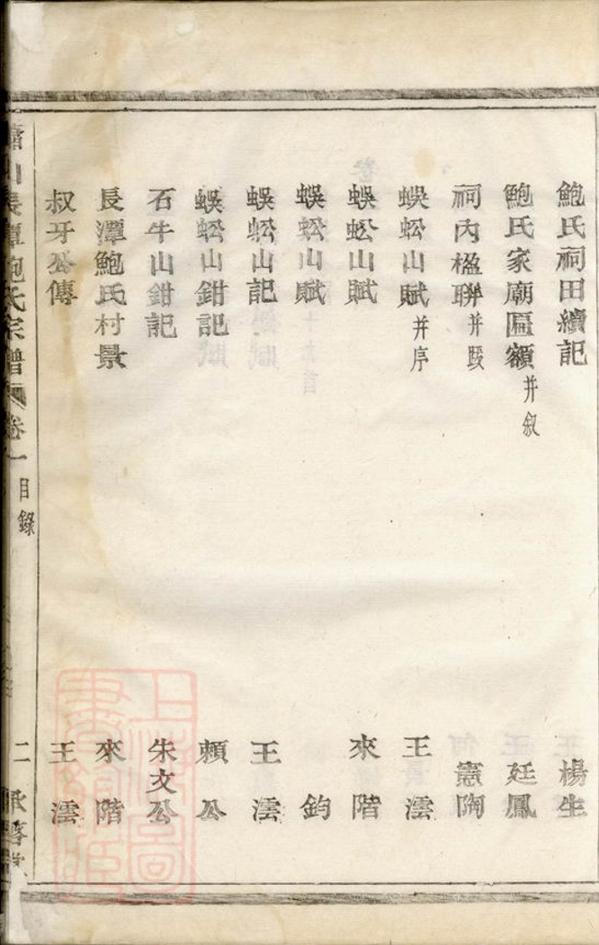 鮑氏祠田續記 楊生
鮑氏家廟匾額并叙 廷鳳
祠內楹聯并跋 憲陶
蜈蚣山賦并序 王澐
蜈蚣山賦 來階
蜈蚣山賦 鈞
蜈蚣山記 王澐
蜈蚣山鉗記 賴公
石牛山鉗記 朱文公
長潭鮑氏村景 來階
叔牙公傳 王澐
山長潭鮑氏宗譜 卷一 目錄 二